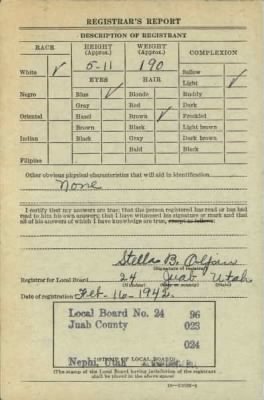 REGISTRAR'S REPORT
DESCRIPTION OF REGISTRANT
RACE HEIGHT (Approx.) WEIGHT (Approx.) COMPLEXION
White ✓ 5-11 190 Sallow
Light ✓
EYES HAIR
Negro Blue ✓ Blonde Ruddy
Gray Red Dark
Oriental Hazel Brown ✓ Freckled
Brown Black Light brown
Indian Black Gray Dark brown
Bald Black
Filipino
Other obvious physical characteristics that will aid in identification
None
I certify that my answers are true; that the person registered has read or has had
read to him his own answers; that I have witnessed his signature or mark and that
all of his answers of which I have knowledge are true, except as follows:
Stella B.
(Signature of registrar)
Registrar for Local Board 24 Juab Utah
(Number) (City or county) (State)
Date of registration Feb. 16-1942
Local Board No. 24 96
Juab County 023
024
Nephi, Utah
(STAMP OF LOCAL BOARD)
(The stamp of the Local Board having jurisdiction of the registrant
shall be placed in the above space)